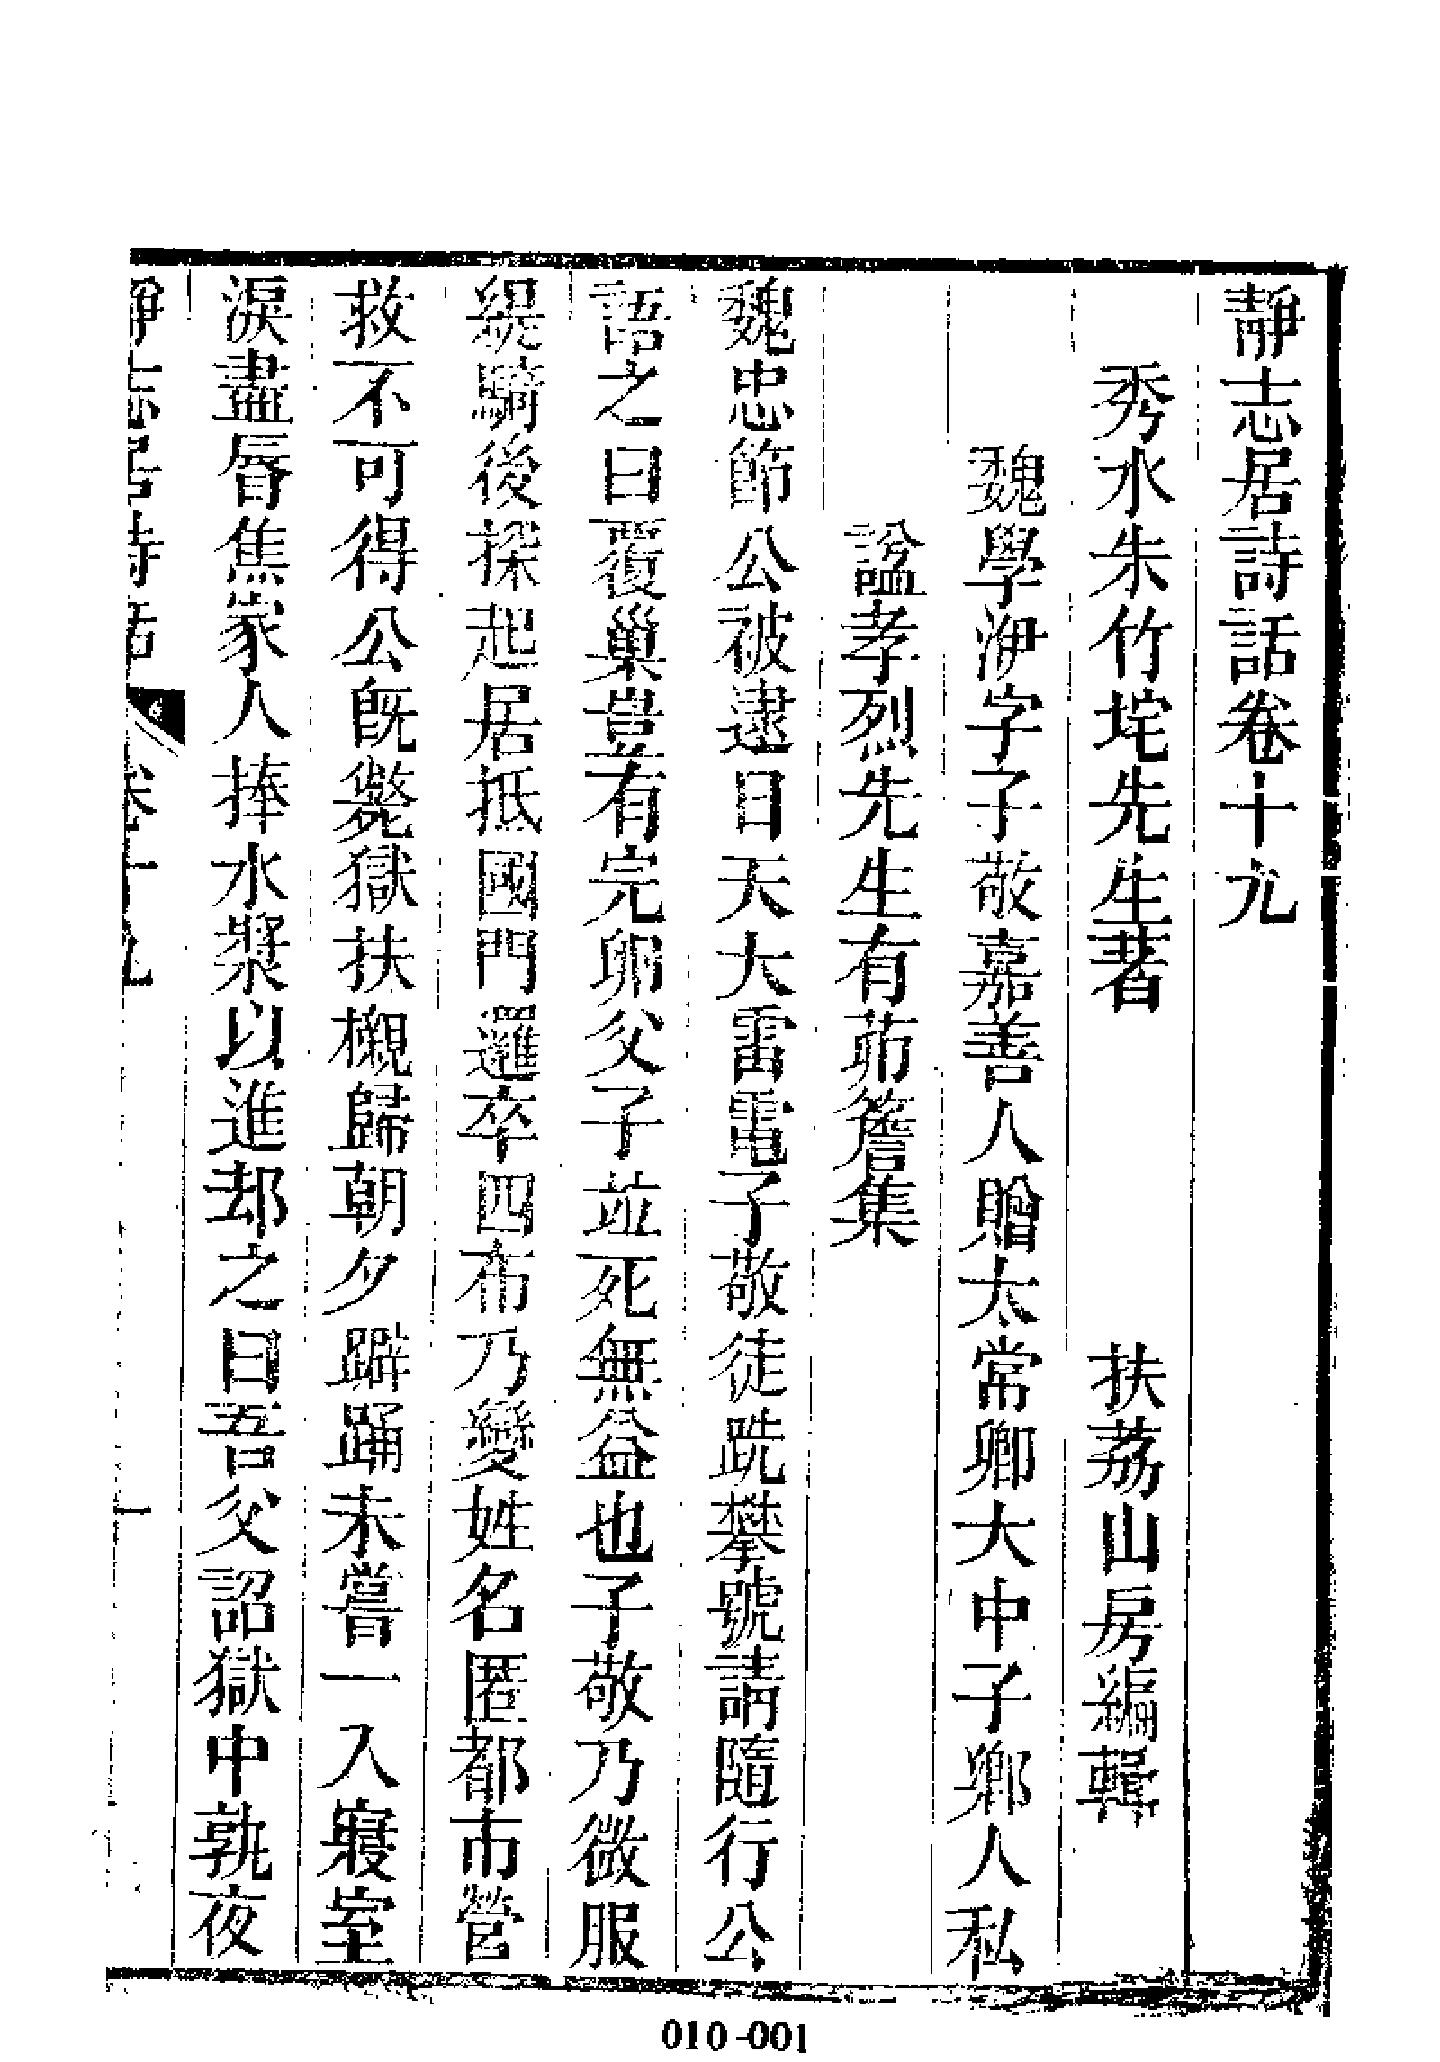 靜志居詩話卷十九
秀水朱竹垞先生著　扶荔山房編輯
魏學洢字子敬嘉善人贈太常卿大中子鄉人私
諡孝烈先生有茆簷集
魏忠節公被逮日天大雷電子敬徒跣攀號請隨行公
語之曰覆巢豈有完卵父子並死無益也子敬乃微服
緹騎後探起居抵國門邏卒四布乃變姓名匿都市營
救不可得公旣斃獄扶櫬歸朝夕躃踊未嘗一入寢室
淚盡脣焦家人捧水漿以進却之曰吾父詔獄中孰夜
靜志居詩話 卷十九 一
010-001